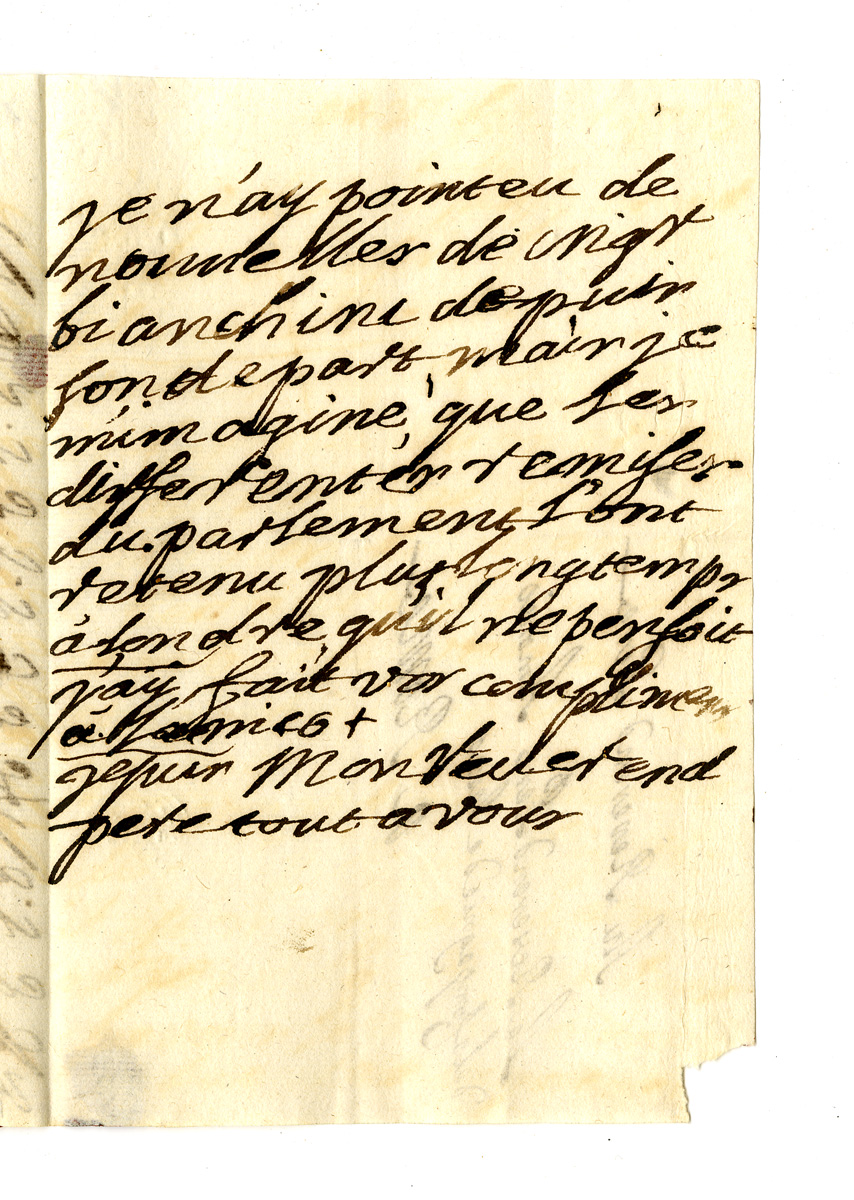 je n'ay point eu de
nouuelles de mgr
bianchini depuis
son depart, mais je
m'imagine, que les
differentes remises
du parlement l'ont
retenu plus longtemps
à londre, qu'il ne pensoit
j'ay fait vos complimens
à l'amico +
je suis Mon Reuerend
pere tout a vous